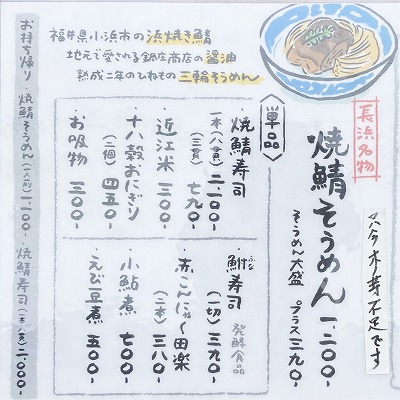 福井県小浜市の浜焼き鯖
地元で愛される鍋庄商店の醤油
熟成二年のひねもの三輪そうめん
長浜名物
焼鯖そうめん 一、二〇〇-
そうめん大盛 プラス三九〇-
スタッフ不足です
単品
焼鯖寿司
一本(八貫) 二、一〇〇-
(三貫) 七九〇-
近江米 三〇〇-
十八穀おにぎり
(二個) 四五〇-
お吸物 三〇〇-
鮒寿司
ふな
(一切) 三九〇-
発酵食品
赤こんにゃく田楽
(二本) 三八〇-
小鮎煮 七〇〇-
えび豆煮 五〇〇-
お持ち帰り ・焼鯖そうめん(一人前)一、一〇〇- ・焼鯖寿司(一本八貫)二、〇〇〇-